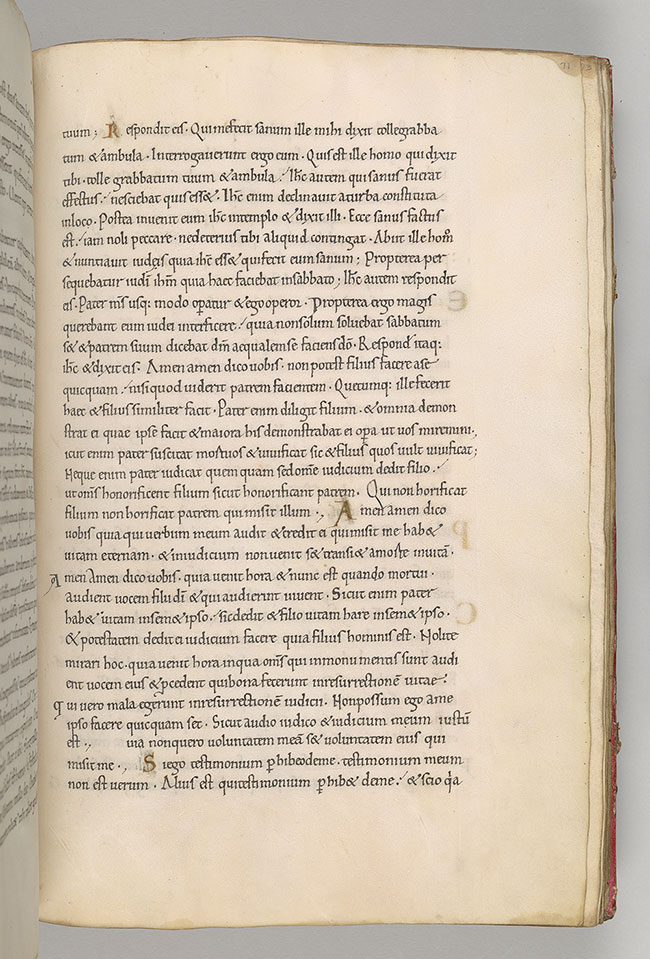 71 73
tuum; Respondit eis. Qui me fecit sanum ille mihi dixit tolle grabba
tum & ambula. Interrogaverunt ergo eum. Quis est ille homo qui dixit
tibi. tolle grabbatum tuum & ambula. Ihc autem qui sanus fuerat
effectus. nesciebat quis ess&. Ihc enim declinavit a turba constituta
in loco. Postea invenit eum ihc in templo & dixit illi. Ecce sanus factus
est. iam noli peccare. ne deterius tibi aliquid contingat. Abiit ille hom̅
& nuntiavit iudęis quia ihc ess& qui fecit eum sanum; Propterea per
sequebatur iudi̅ ihm̅ quia haec faciebat in sabbato; Ihc autem respondit
eis. Pater m̅s usq: modo operatur & ego operor. Propterea ergo magis
querebant eum iudei interficere. quia non solum solvebat sabbatum
s& & patrem suum dicebat dm̅ aequalem se faciens dō. Respond itaq:
ihc & dixit eis. Amen amen dico vobis. non potest filius facere a se
quicquam. nisi quod viderit patrem facientem. Quecumq: ille fecerit
haec & filius similiter facit. Pater enim diligit filium. & omnia demon
strat ei quae ipse facit & maiora his demonstrabat ei op̅a ut vos miremini.,
icut enim pater suscitat mortuos & vivificat sic & filius quos vult vivificat;
Neque enim pater iudicat quem quam sed om̅e iudicium dedit filio.
ut om̅s honorificent filium sicut honorificant patrem. Qui non horificat
filium non horificat patrem qui misit illum., Amen amen dico
vobis quia qui verbum meum audit & credit ei qui misit me hab&
vitam eternam. & in iudicium non venit s& transi& a morte in vitā.
Amen Amen dico vobis. quia venit hora & nunc est quando mortui.
audient vocem filii dī & qui audierint vivent. Sicut enim pater
hab& vitam in sem& ipso. sic dedit & filio vitam hare in sem& ipso.
& potestatem dedit ei iudicium facere quia filius hominis est. Nolite
mirari hoc. quia venit hora in qua om̅s qui in monumentis sunt audi
ent vocem eius & p̅cedent qui bona fecerunt in resurrectionē vitae.
qui vero mala egerunt in resurrectionē iudicii. Non possum ego a me
ipso facere quicquam set. Sicut audio iudico & iudicium meum iustū
est., uia non quero voluntatem meā s& voluntatem eius qui
misit me., Si ego testimonium p̱hibeo de me. testimonium meum
non est verum. Alius est qui testimonium p̱hib& de me. & scio q̅a